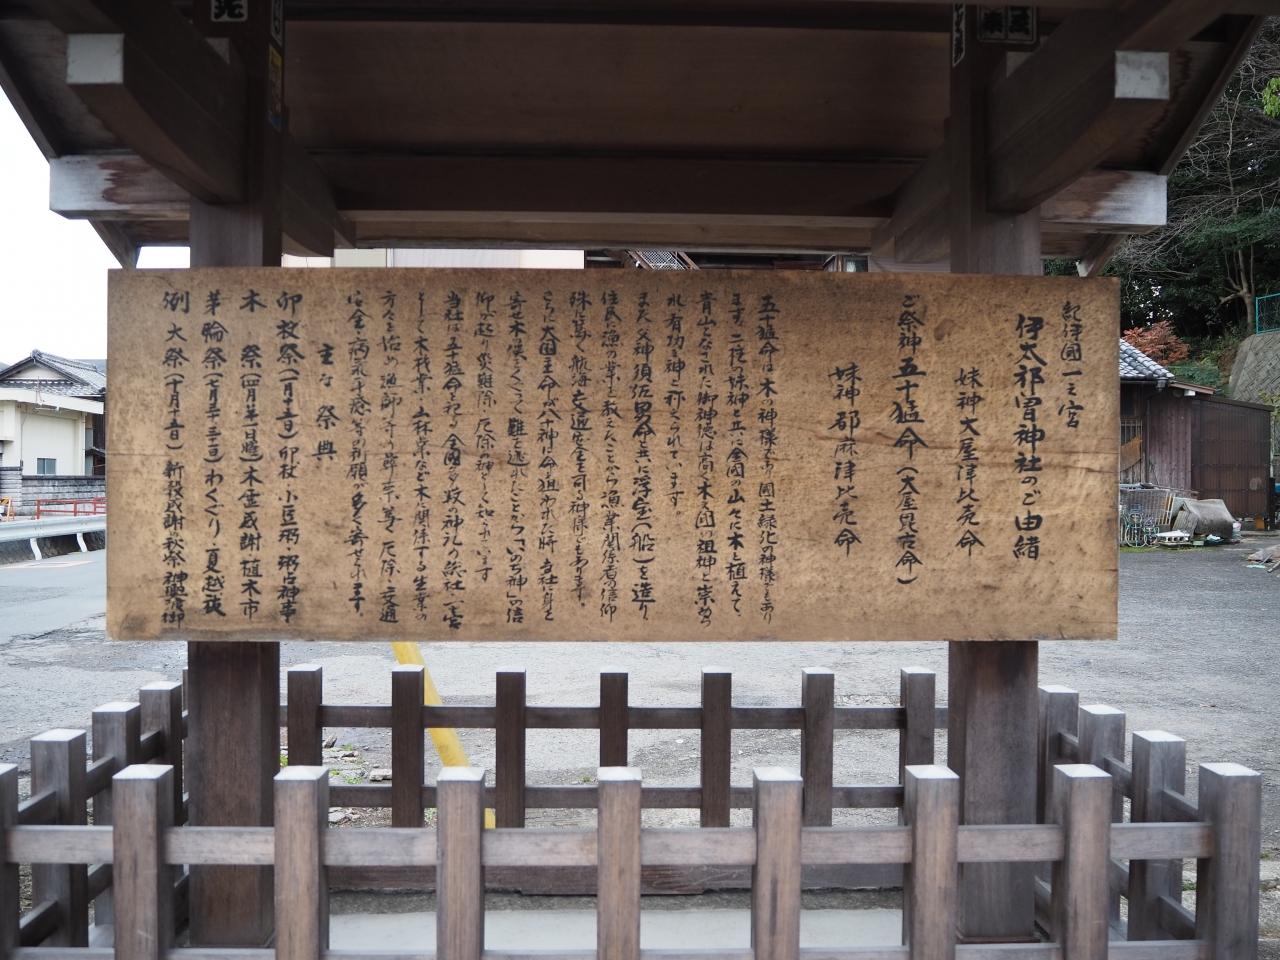 紀伊國一之宮
伊太祁曽神社のご由緒
妹神大屋津比売命
ご祭神五十猛命（大屋毘古命）
妹神都麻津比売命
五十猛命は木の神様であり国土緑化の神様でもあり
ます。二柱の妹神と共に全国の山々に木を植えて、
青山となされた御神徳は尚く木の国の祖神と崇めら
れ有功の神と称えられています。
また父神須佐男命と共に浮宝（船）を造り
住民に漁の業を教えたことから漁業関係者の信仰
殊に篤く航海安全を司る神様でもあります。
さらに大国主命が八十神に命狙われた時当社に身を
寄せ木の俣をくぐって難を逃れたことから「いのち神」の信
仰が起り災難除厄除の神として知られています
当社は五十猛命を祀る全国多数の神社の総社一之宮
として木材業、山林業など木に関係する生業の
方々を始め漁師さの等々厄除、交通
安全、病気平癒等の祈願が多く寄せられます。
主な祭典
卯杖祭（一月十五日）卯杖、小豆粥、粥占神事
木祭（四月第一日曜）木霊感謝、植木市
茅輪祭（七月三十日三十一日）わくぐり、夏越祓
例大祭（十月十五日）新穀感謝の秋祭、神輿渡御